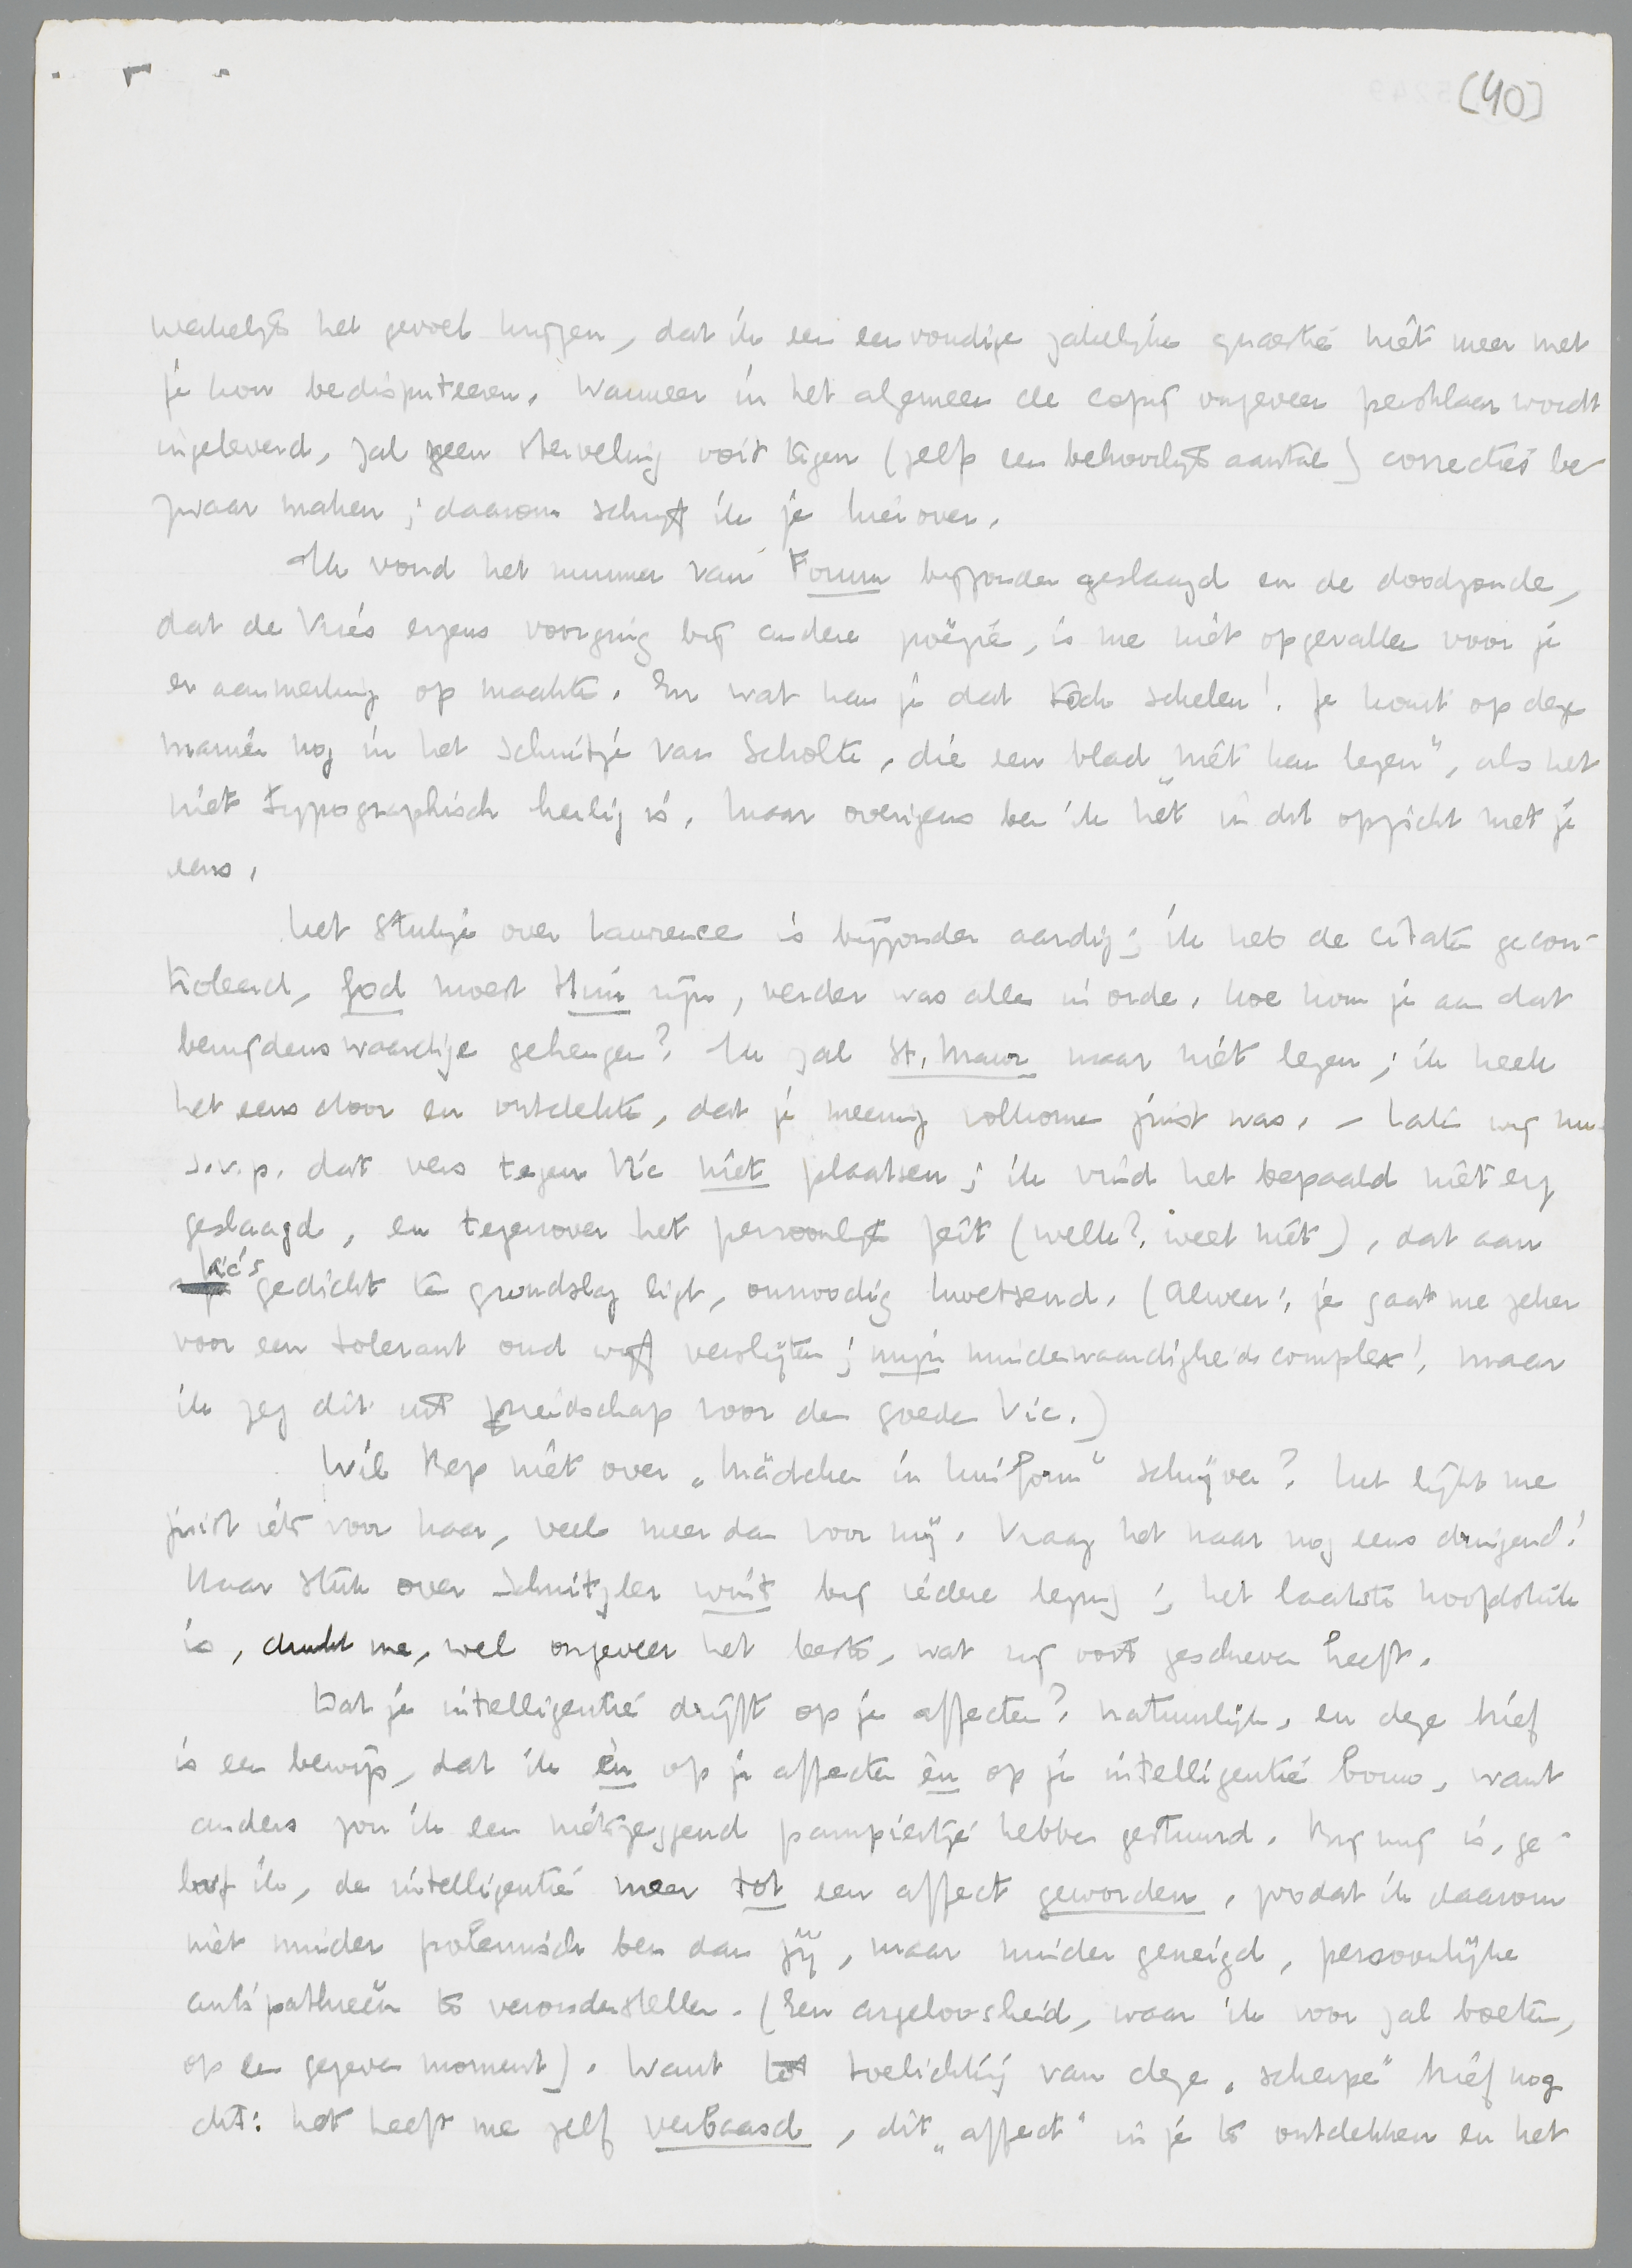 [40]
werkelijk het gevoel krijgen, dat ik een eenvoudige zakelijke quaestie niet meer met
je kon bedisputeeren. Wanneer in het algemeen de copy ongeveer persklaar wordt
ingeleverd, zal geen sterveling ooit tegen (zelfs een behoorlijk aantal) correcties be-
zwaar maken; daarom schrijf ik je hierover.
Ik vond het nummer van Forum bijzonder geslaagd en de doodzonde,
dat de Vries ergens voorging bij andere poëzie, is me niet opgevallen voor je
er aanmerking op maakte. En wat kan je dat toch schelen! Je komt op deze
manier nog in het schuitje van Scholte, die een blad „niet kan lezen", als het
niet typographisch heilig is. Maar overigens ben ik het in dit opzicht met je
eens.
Het stukje over Lawrence is bijzonder aardig; ik heb de citaten gecon-
troleerd, God moest Him zijn, verder was alles in orde. Hoe kom je aan dat
benijdenswaardige geheugen? Ik zal St. Mawr maar niet lezen; ik keek
het eens door en ontdekte, dat je meening volkomen juist was. – Laten wij nu
s.v.p. dat vers tegen Vic niet plaatsen; ik vind het bepaald niet erg
geslaagd, en tegenover het persoonlijk feit (welk? weet niet), dat aan
Vic's gedicht ten grondslag ligt, onnoodig kwetsend. (Alweer: je gaat me zeker
voor een tolerant oud wijf verslijten; mijn minderwaardigheidscomplex! Maar
ik zeg dit uit vriendschap voor den goeden Vic.)
Wil Bep niet over „Mädchen in Uniform" schrijven? Het lijkt me
juist iets voor haar, veel meer dan voor mij. Vraag het haar nog eens dringend!
Haar stuk over Schnitzler wint bij iedere lezing; het laatste hoofdstuk
is, dunkt me, wel ongeveer het beste, wat zij ooit geschreven heeft.
Dat je intelligentie drijft op je affecten? Natuurlijk, en deze brief
is een bewijs, dat ik èn op je affecten èn op je intelligentie bouw, want
anders zou ik een nietszeggend pampiertje hebben gestuurd. Bij mij is, ge-
loof ik, de intelligentie meer tot een affect geworden, zoodat ik daarom
niet minder polemisch ben dan jij, maar minder geneigd, persoonlijke
antipathieën te veronderstellen. (Een argeloosheid, waar ik voor zal boeten,
op een gegeven moment). Want tot toelichting van deze „scherpe" brief nog
dit: het heeft me zelf verbaasd, dit „affect" in je te ontdekken en het